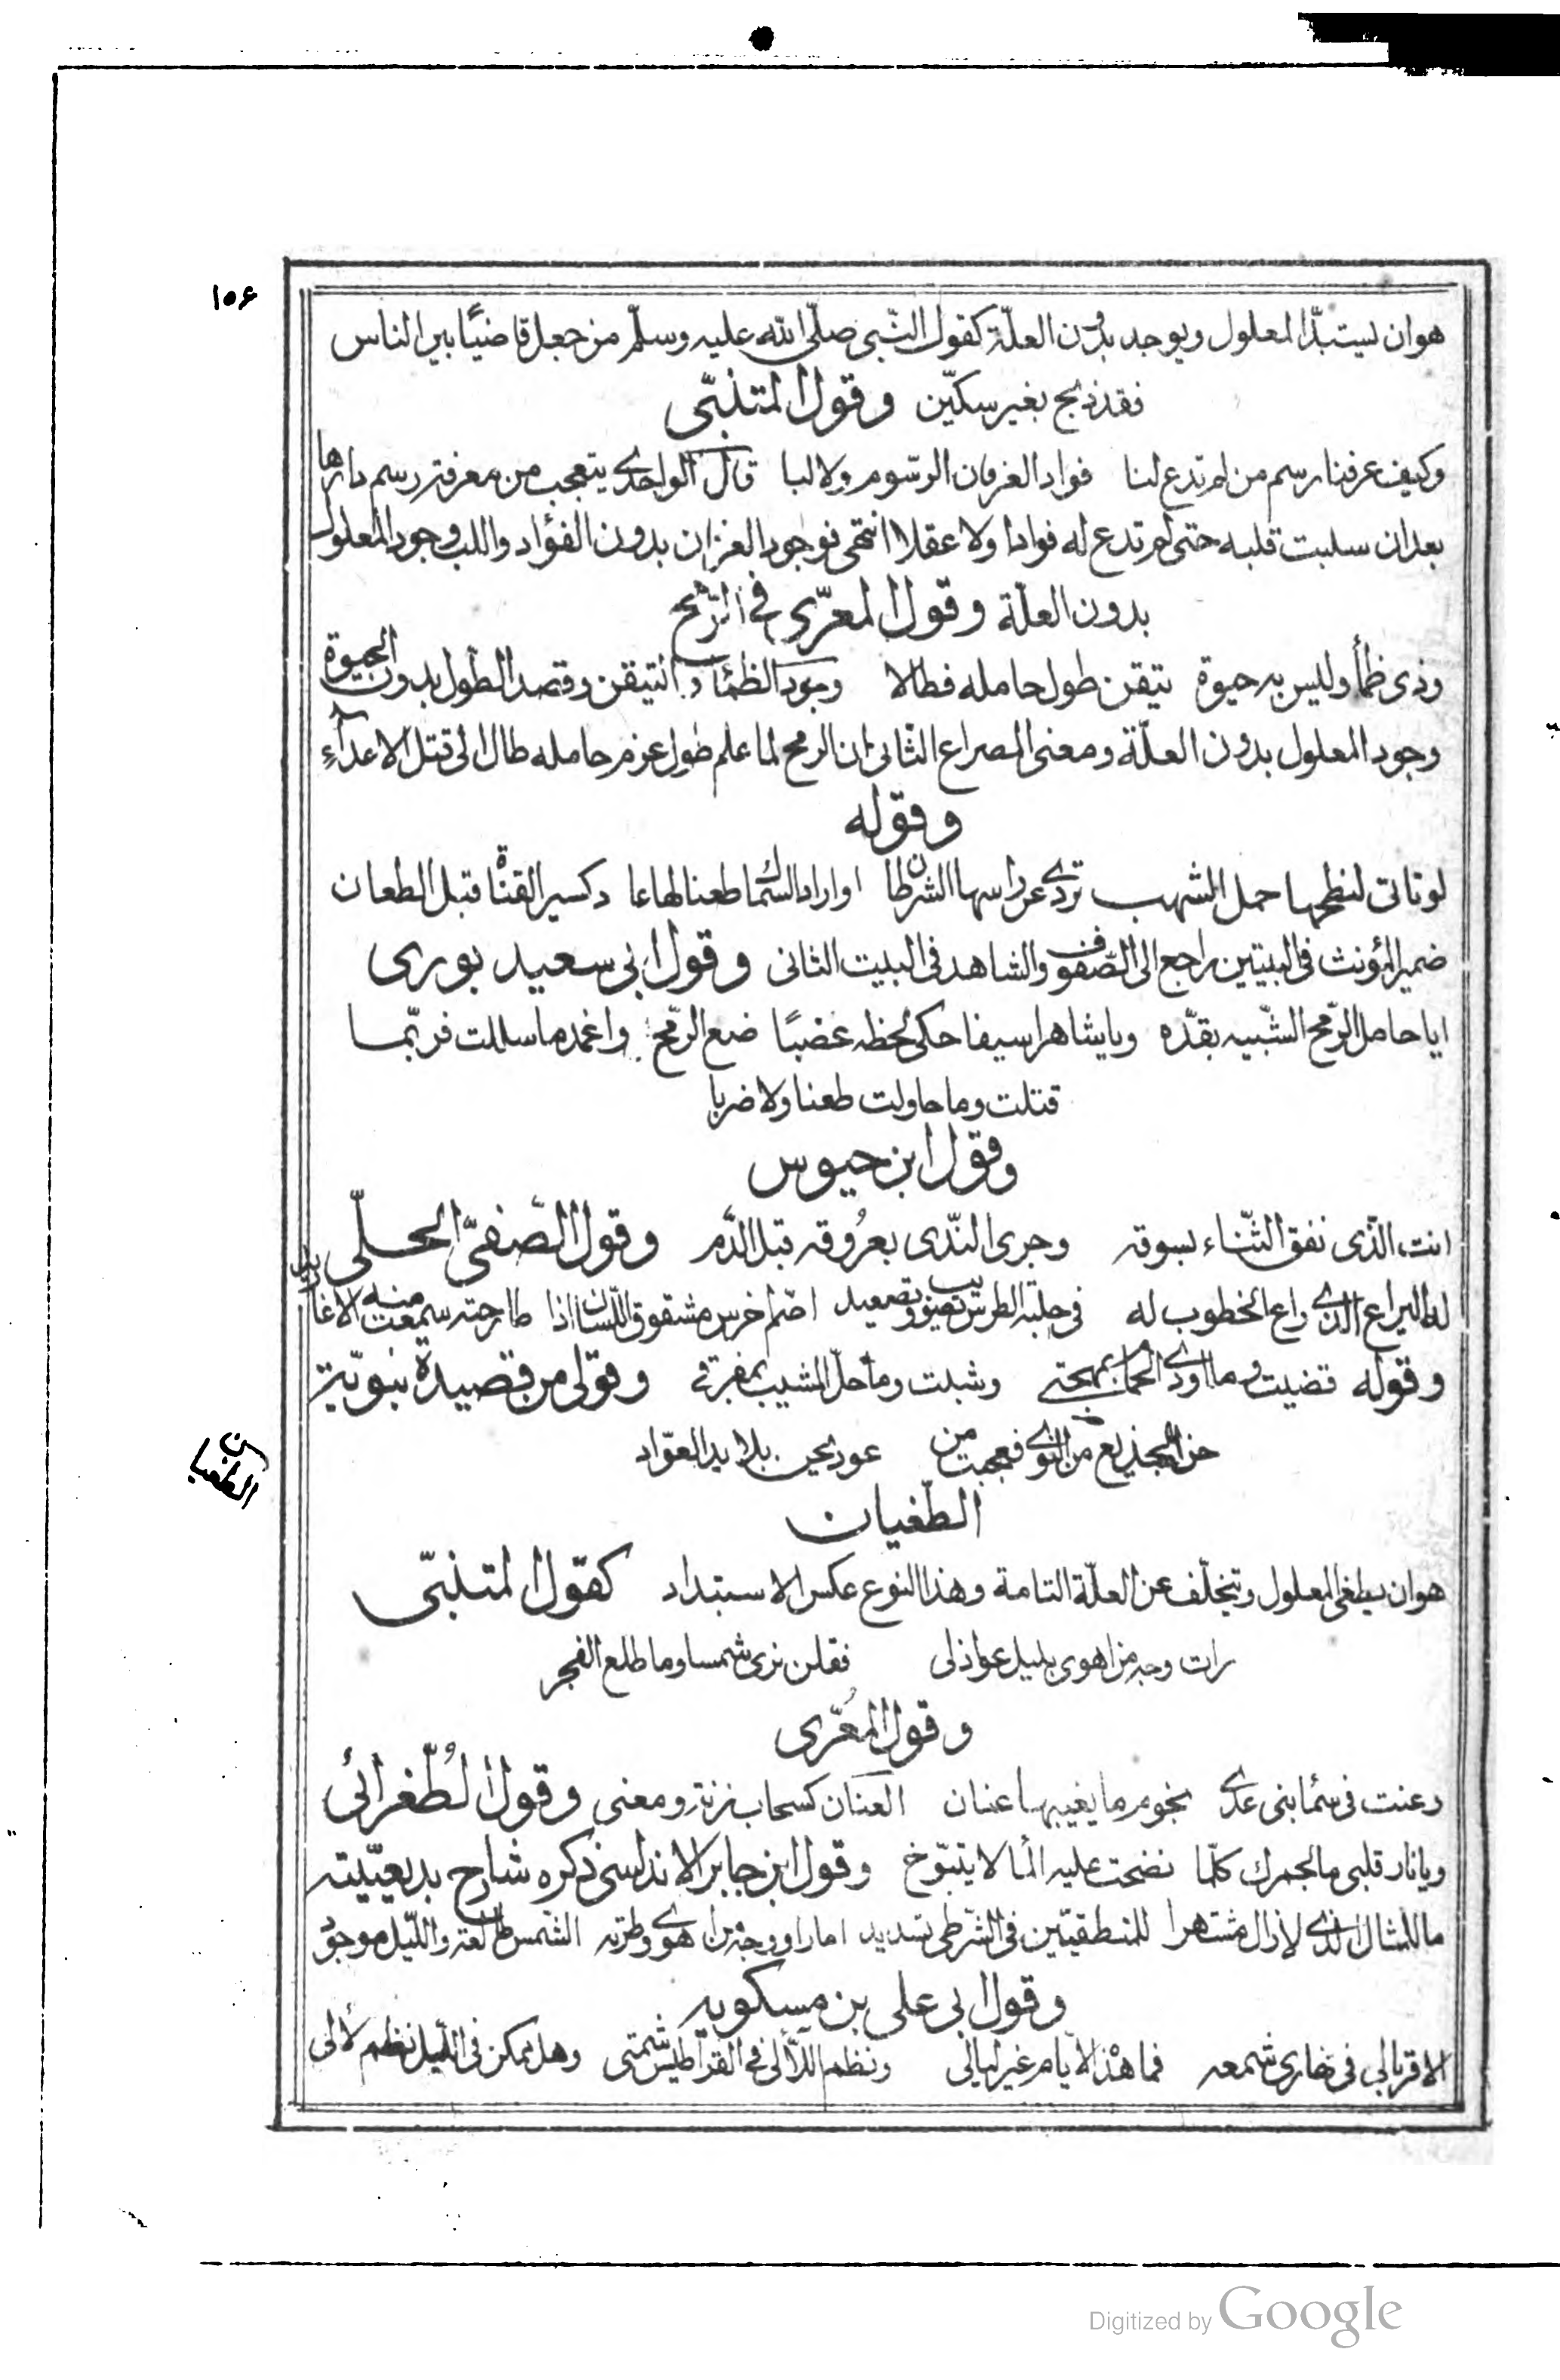 ١٥٦
هو ان يستبدّ المعلول ويوجد بدون العلّة كقول النّبى صلّى الله عليه وسلّم من جعل قاضيًا بين الناس
فقد ذبح بغير سكّين وقول المتنبّى
وكيف عرفنا رسم من لم تدع لنا فواد العرفان الرسّوم ولا لبا قال الواحدے يتعجب من معرفته رسم دارها
بعد ان سلبت قلبه حتى لم تدع له فوادا ولا عقلا انتهى فوجود العرفان بدون الفؤاد واللب وجود المعلول
بدون العلّة وقول المعرّى فى الرّمح
وذى ظمأ وليس به حيوة تيقن طول حامله فطالا وجود الظمأ و التيقن وقصد الطول بدون الحيوة
وجود المعلول بدون العلّة ومعنى المصراع الثّانى ان الرمح لما علم طول عزم حامله طال الى قتل الاعداء
وقوله
لو تاتى لنطحها حمل الشهب تردّى عن راسها الشرطان او اراد السماك طعنا لها عاد كسير القناة قبل الطعان
ضمير المؤنث فى البيتين راجع الى الصّفوف والشاهد فى البيت الثانى وقول ابى سعيد بورى
ايا حامل الرّمح الشّبيه بقدّه ويا شاهرا سيفا حكى لحظه عضبًا ضع الرّمح واغمد ما سللت فربّما
قتلت وما حاولت طعنا ولا ضربا
وقول ابن حيوس
انت الّذى نفق الثّناء بسوقه وجرى النّدى بعُروقه قبل الدّم وقول الصّفىّ الحلّى
له اليراع الذے راع الخطوب له فى حلبة الطرس تصويب وتصعيد اصّم اخرس مشقوق اللّسان اذا طارحته سمعت منه الاغاريد
وقوله قضيت وما اودے الحمام بمهجتے وشبت وما حلّ المشيب بمفرقے وقولى من قصيدة نبويّة
حن الجذيع من النوے فعجبت من عود يحن بلا يد العوّاد
الطّغيان
الطغيان
هو ان يطغى المعلول ويتخلّف عن العلّة التامة وهذا النوع عكس الاستبداد كقول المتنبّى
رات وجه من اهوى بليل عواذلى فقلن نرى شمسا وما طلع الفجر
وقول المعُرّى
وعنت فى سمٓا بنى عدے نجوم ما يغيبها عنان العَنان كسحاب زنة ومعنى وقول الطُّغرائى
ويا نار قلبى ما لجمرك كلّما نضحت عليه المٓا لا يتبوّخ وقول ابن جابر الاندلسى ذكره شارح بديعيّته
ما للمثال الذے لا زال مشتهرا للمنطقيّين فى الشّرطى تسديد اما راو وجه من اهوے وطرته الشّمس طالعة والليل موجود
وقول ابى على بن مسكويه
الا قربا لى فى نهارى شمعه فما هذه الايام غير ليالى ونظم اللّٓالى فى القراطيس شمتى وهل يمكن فى اللّيل نظم لآلى